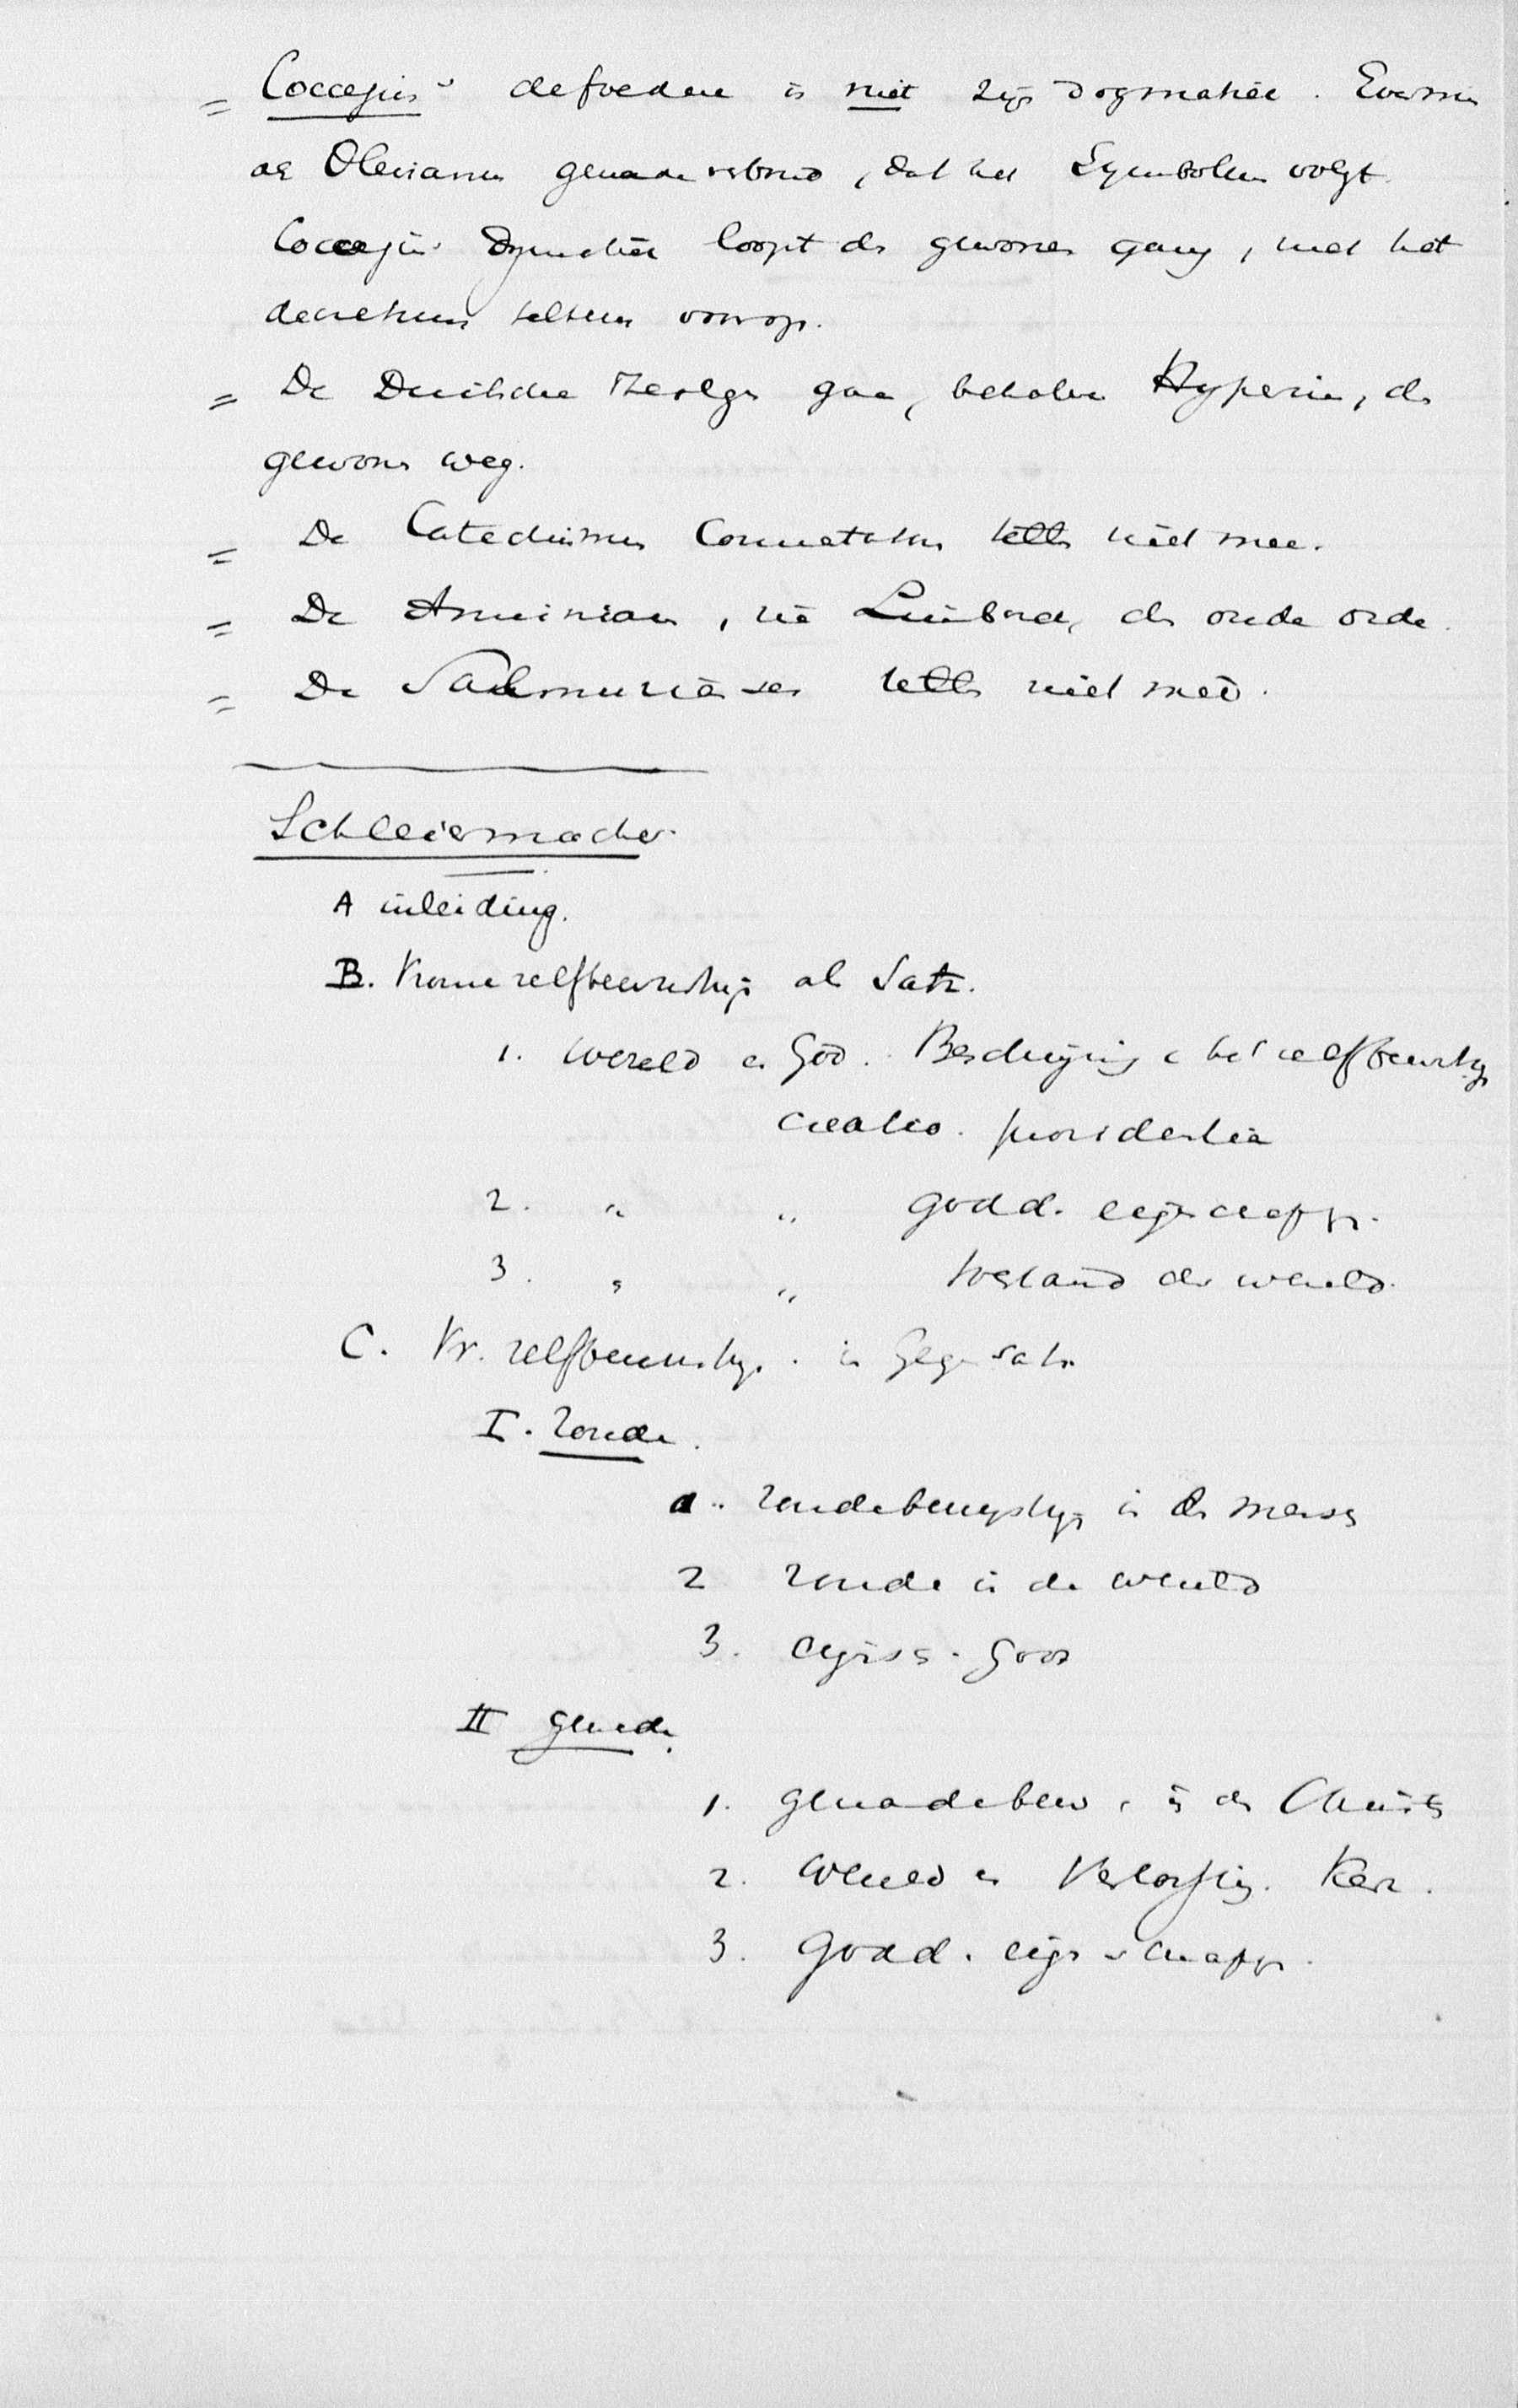 = Coccejus' de foedere is niet zijn dogmatiek. Evenmin
als Olevianus genadeverbond, dat het Symbolum volgt.
Coccejus' Dogmatiek loopt de gewonen gang, met het
decretum voorop.
= De Duitsche Theologen gaan, behalve Hyperius, de
gewone weg.
= De Catechismus Commentatoren tellen niet mee.
= De Arminianen, zie Limborch, de oude orde.
= De Salmuriënsers tellen niet mee.
Schleiermacher.
A inleiding.
B. Vrome zelfbewustzijn als Satz.
1. Wereld en God. Beschrijving v het zelfbewustzijn
creatio. providentia
2. " " godd. eigenschappen.
3. " " toestand der wereld.
C. Vr. zelfbewustzijn. in Gegensatz
I. Zonde.
a. Zondebewustzijn in den mensch
2 zonde in de wereld
3. eigensch. Gods
II genade.
1. genadebew. in den Christ.
2. Wereld en Verlossing. Kerk.
3. Godd. eigenschappen.